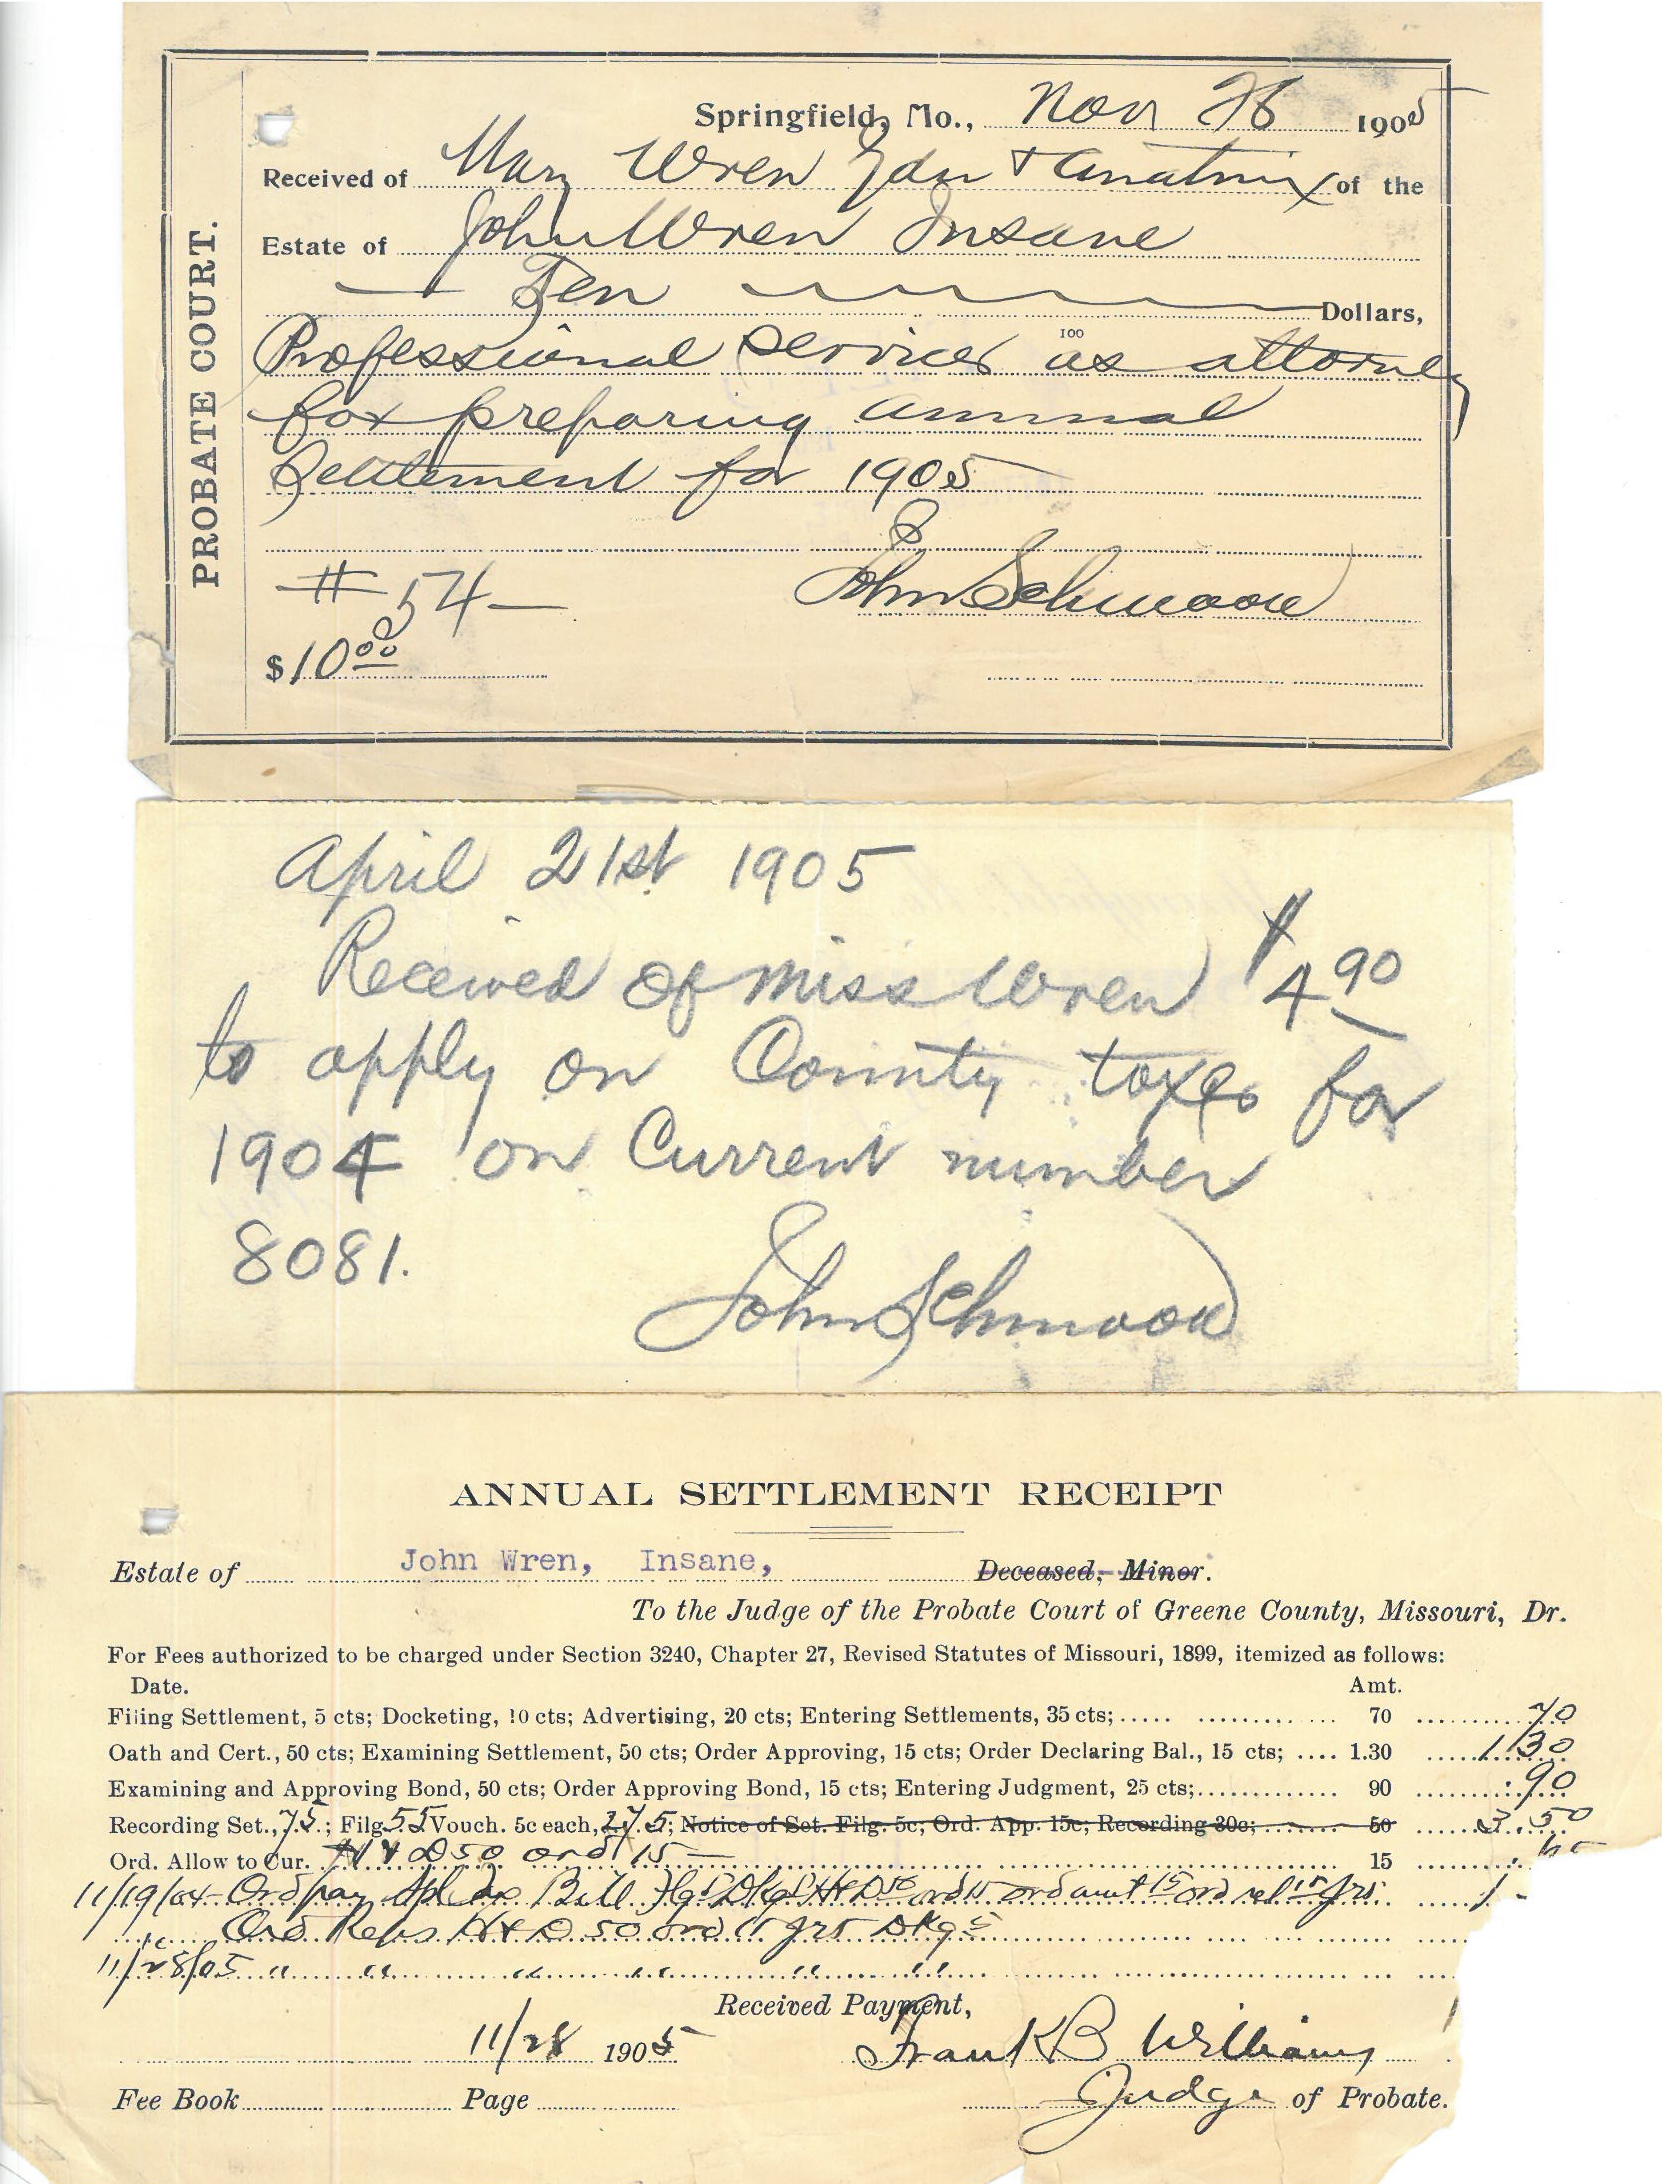 PROBATE COURT.
Springfield, Mo., Nov 28 1905
Received of Mary Wren Gdn & Curatrix of the
Estate of John Wren Insane
Ten Dollars,
100
Professional services as attorney
for preparing annual
Settlement for 1905
# 54
John Schmook
$10.00
April 21st 1905
Received of Miss Wren $4.90
to apply on County taxes for
1904 on Current number
8081.
John Schmook
ANNUAL SETTLEMENT RECEIPT
Estate of John Wren, Insane, Deceased, Minor.
To the Judge of the Probate Court of Greene County, Missouri, Dr.
For Fees authorized to be charged under Section 3240, Chapter 27, Revised Statutes of Missouri, 1899, itemized as follows:
Date. Amt.
Filing Settlement, 5 cts; Docketing, 10 cts; Advertising, 20 cts; Entering Settlements, 35 cts; 70 70
Oath and Cert., 50 cts; Examining Settlement, 50 cts; Order Approving, 15 cts; Order Declaring Bal., 15 cts; 1.30 1.30
Examining and Approving Bond, 50 cts; Order Approving Bond, 15 cts; Entering Judgment, 25 cts; 90 .90
Recording Set., 75; Filg 55 Vouch. 5c each, 2.75; Notice of Set. Filg. 5c; Ord. App. 15c; Recording 30c; 50 3.50
Ord. Allow to Cur. H & D 50 ord 15 15
11/19/04 Ord pay Bill
Ord H & D 50 ord Dkg 5
11/28/05 " " " " " "
Received Payment,
11/28 1905 Frank B Williams
Fee Book Page Judge of Probate.